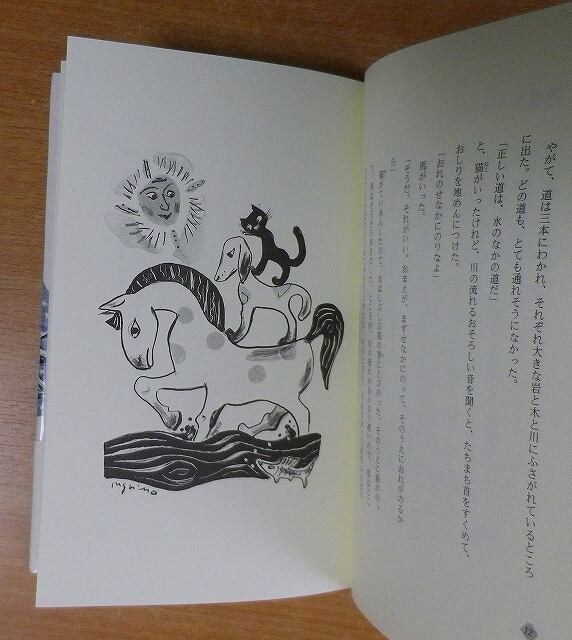 やがて、道は三本にわかれ、それぞれ大きな岩と木と川にふさがれているところ
に出た。どの道も、とても通れそうになかった。
「正しい道は、水のなかの道だ」
と、猫がいったけれど、川の流れるおそろしい音を聞くと、たちまち首をすくめて、
おしりを地めんにつけた。
「おれのせなかにのりなよ」
馬がいった。
「そうだ、それがいい。おまえが、まずせなかにのって、そのうえにおれがのるか
ら」
12